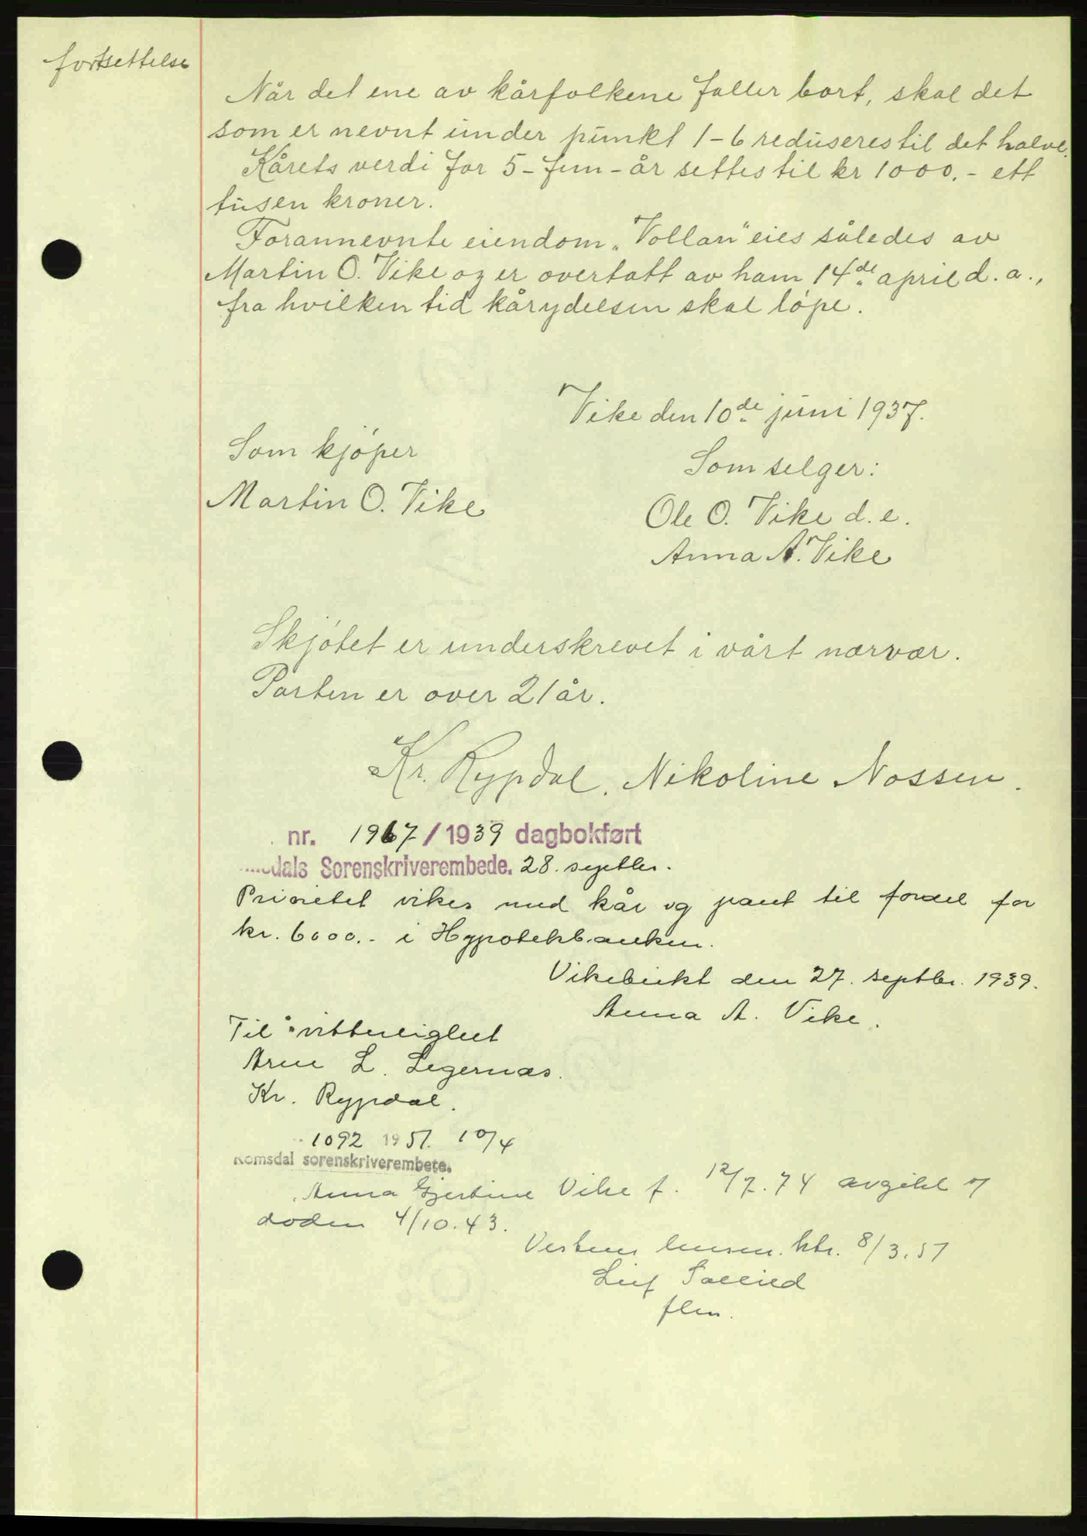 fortsettelse
Når det ene av kårfolkene faller bort, skal det
som er nevnt under punkt 1-6 reduseres til det halve.
Kårets verdi for 5 - fem - år settes til kr 1000.- ett
tusen kroner.
Forannevnte eiendom „Vollan" eies således av
Martin O. Vike og er overtatt av ham 14de april d. a.,
fra hvilken tid kårydelsen skal löpe.
Vike den 10de juni 1937.
Som kjöper
Som selger:
Martin O. Vike
Ole O. Vike d. e.
Anna A. Vike
Skjötet er underskrevet i vårt nærvær.
Parten er over 21 år.
Kr. Rypdal. Nikoline Nossen.
nr. 1967/1939 dagbokført
sdals Sorenskriverembede. 28. septbr.
Prioritet vikes med kår og pant til fordel for
kr. 6000.- i Hypotekbanken.
Vikebukt den 27. septbr. 1939.
Anna A. Vike.
Til vitterlighet
Arne L. Legernæs.
Kr. Rypdal.
1092 1951. 10/4
Romsdal sorenskriverembete.
Anna Gjertine Vike f. 12/7.74 avgikk v
døden 4/10.43.
8/3.51
Leif